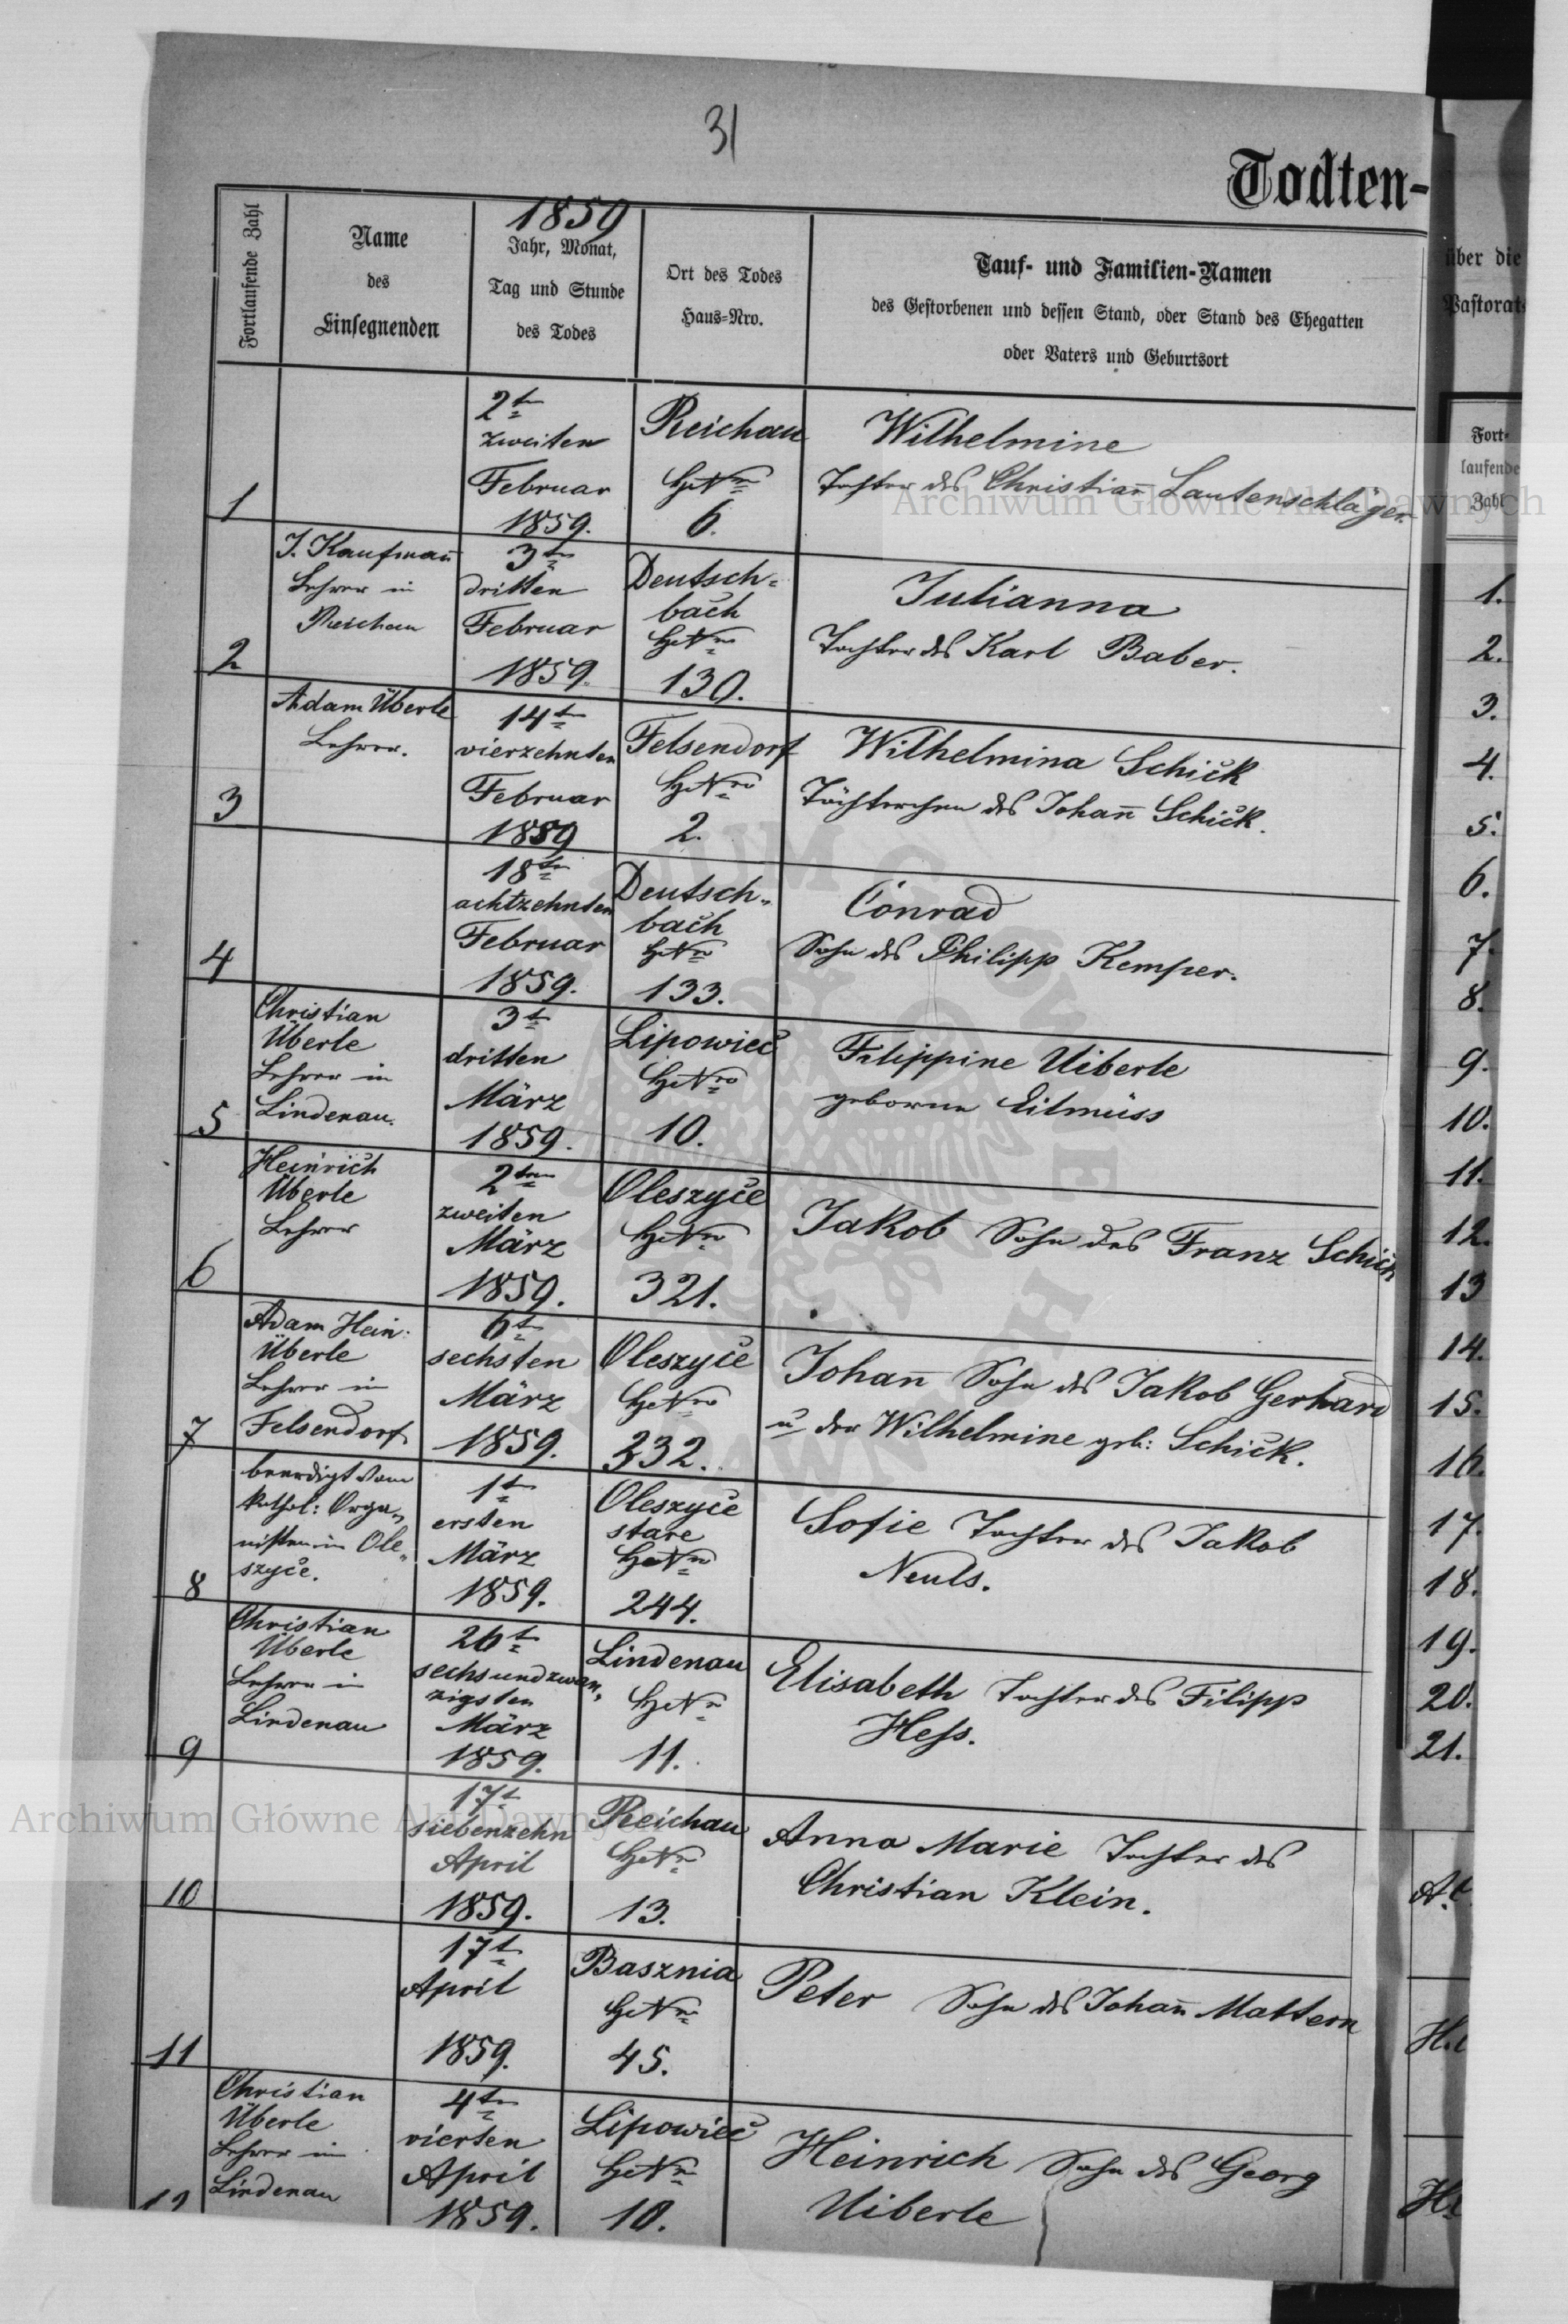 31
Todten-
1859
Fortlaufende Zahl
Name
des
Einsegnenden
Jahr, Monat,
Tag und Stunde
des Todes
Ort des Todes
Haus=Nro.
Tauf- und Familien-Namen
des Gestorbenen und dessen Stand, oder Stand des Ehegatten
oder Vaters und Geburtsort
1
2t
zweiten
Februar
1859.
Reichau
HNro
6.
Wilhelmine
Tochter des Christian̄ Lautenschläger.
2
J. Kaufman̄
Lehrer in
Reichau
3ten
dritten
Februar
1859.
Deutsch=
bach
HNro
130.
Julianna
Tochter des Karl Baber.
3
Adam Überle
Lehrer.
14t
vierzehnten
Februar
1859
Felsendorf
HNro
2.
Wilhelmina Schick
Töchterchen des Johan̄ Schick.
4
18t
achtzehnten
Februar
1859.
Deutsch„
bach
HNro
133.
Conrad
Sohn des Philipp Kemper.
5
Christian
Überle
Lehrer in
Lindenau.
3t
dritten
März
1859.
Lipowiec
HNro
10.
Filippine Uiberle
geborne Eilmüss
6
Heinrich
Überle
Lehrer
2ten
zweiten
März
1859.
Oleszyce
HNro
321.
Jakob Sohn des Franz Schick
7
Adam Hein:
Überle
Lehrer in
Felsendorf
6t
sechsten
März
1859.
Oleszyce
HNro
232.
Johan̄ Sohn des Jakob Gerhard
u der Wilhelmine geb: Schick.
8
beerdigt vom
kathol: Orga„
nisten in Ole„
szyce.
1t
ersten
März
1859.
Oleszyce
stare
HNro
244.
Sofie Tochter des Jakob
Neuls.
9
Christian
Überle
Lehrer in
Lindenau
26t
sechsundzwan„
zigsten
März
1859.
Lindenau
HNro
11.
Elisabeth Tochter des Filipp
Hess.
10
17t
siebenzehn
April
1859.
Reichau
HNro
13.
Anna Marie Tochter des
Christian Klein.
11
17t
April
1859.
Basznia
HNro
45.
Peter Sohn des Johan̄ Mattern
12
Christian
Überle
Lehrer in
Lindenau
4ten
vierten
April
1859.
Lipowiec
HNro
10.
Heinrich Sohn des Georg
Uiberle
über die
Pastorats
Fort-
laufende
Zahl
1.
2.
3.
4.
5.
6.
7.
8.
9.
10.
11.
12.
13
14.
15.
16.
17.
18.
19.
20.
21.
Archiwum Główne Akt Dawnych
Archiwum Główne Akt Dawnych